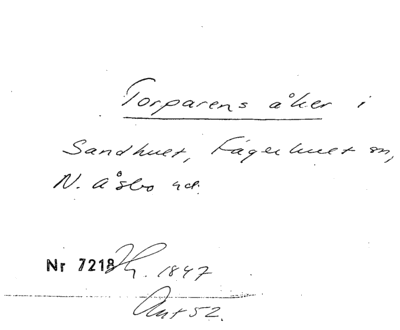 Torparens åker i
Sandhult, Fagerhult sn,
N. Åsbo hd.
Nr 7218 Hr. 1847
Ant 52.